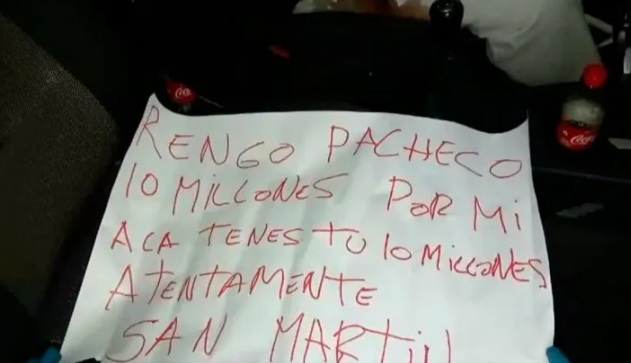 RENGO PACHECO
10 MILLONES POR Mi
ACA TENES TU 10 MiLLONES
ATENTAMENTE
SAN MARTiN